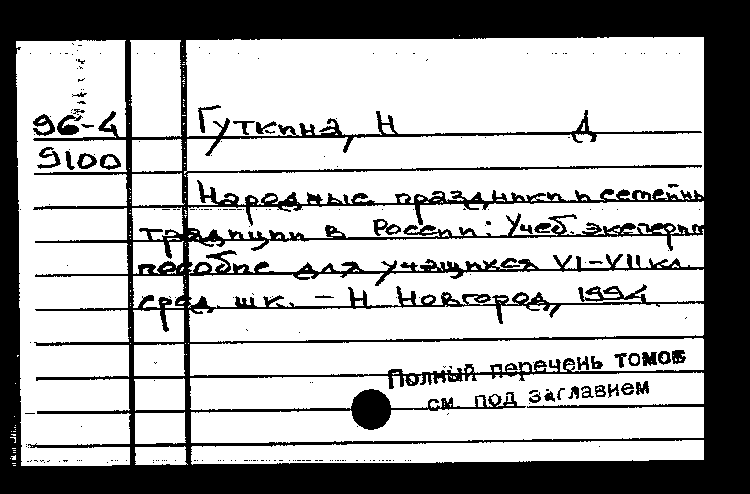 96-4 Гуткина, Н Д
9100
Народные праздники и семейн
традиции в России: Учеб. эксперим
пособие для учащихся VI-VII кл.
сред. шк. - Н Новгород, 1994.
Полный перечень томов
см. под заглавием